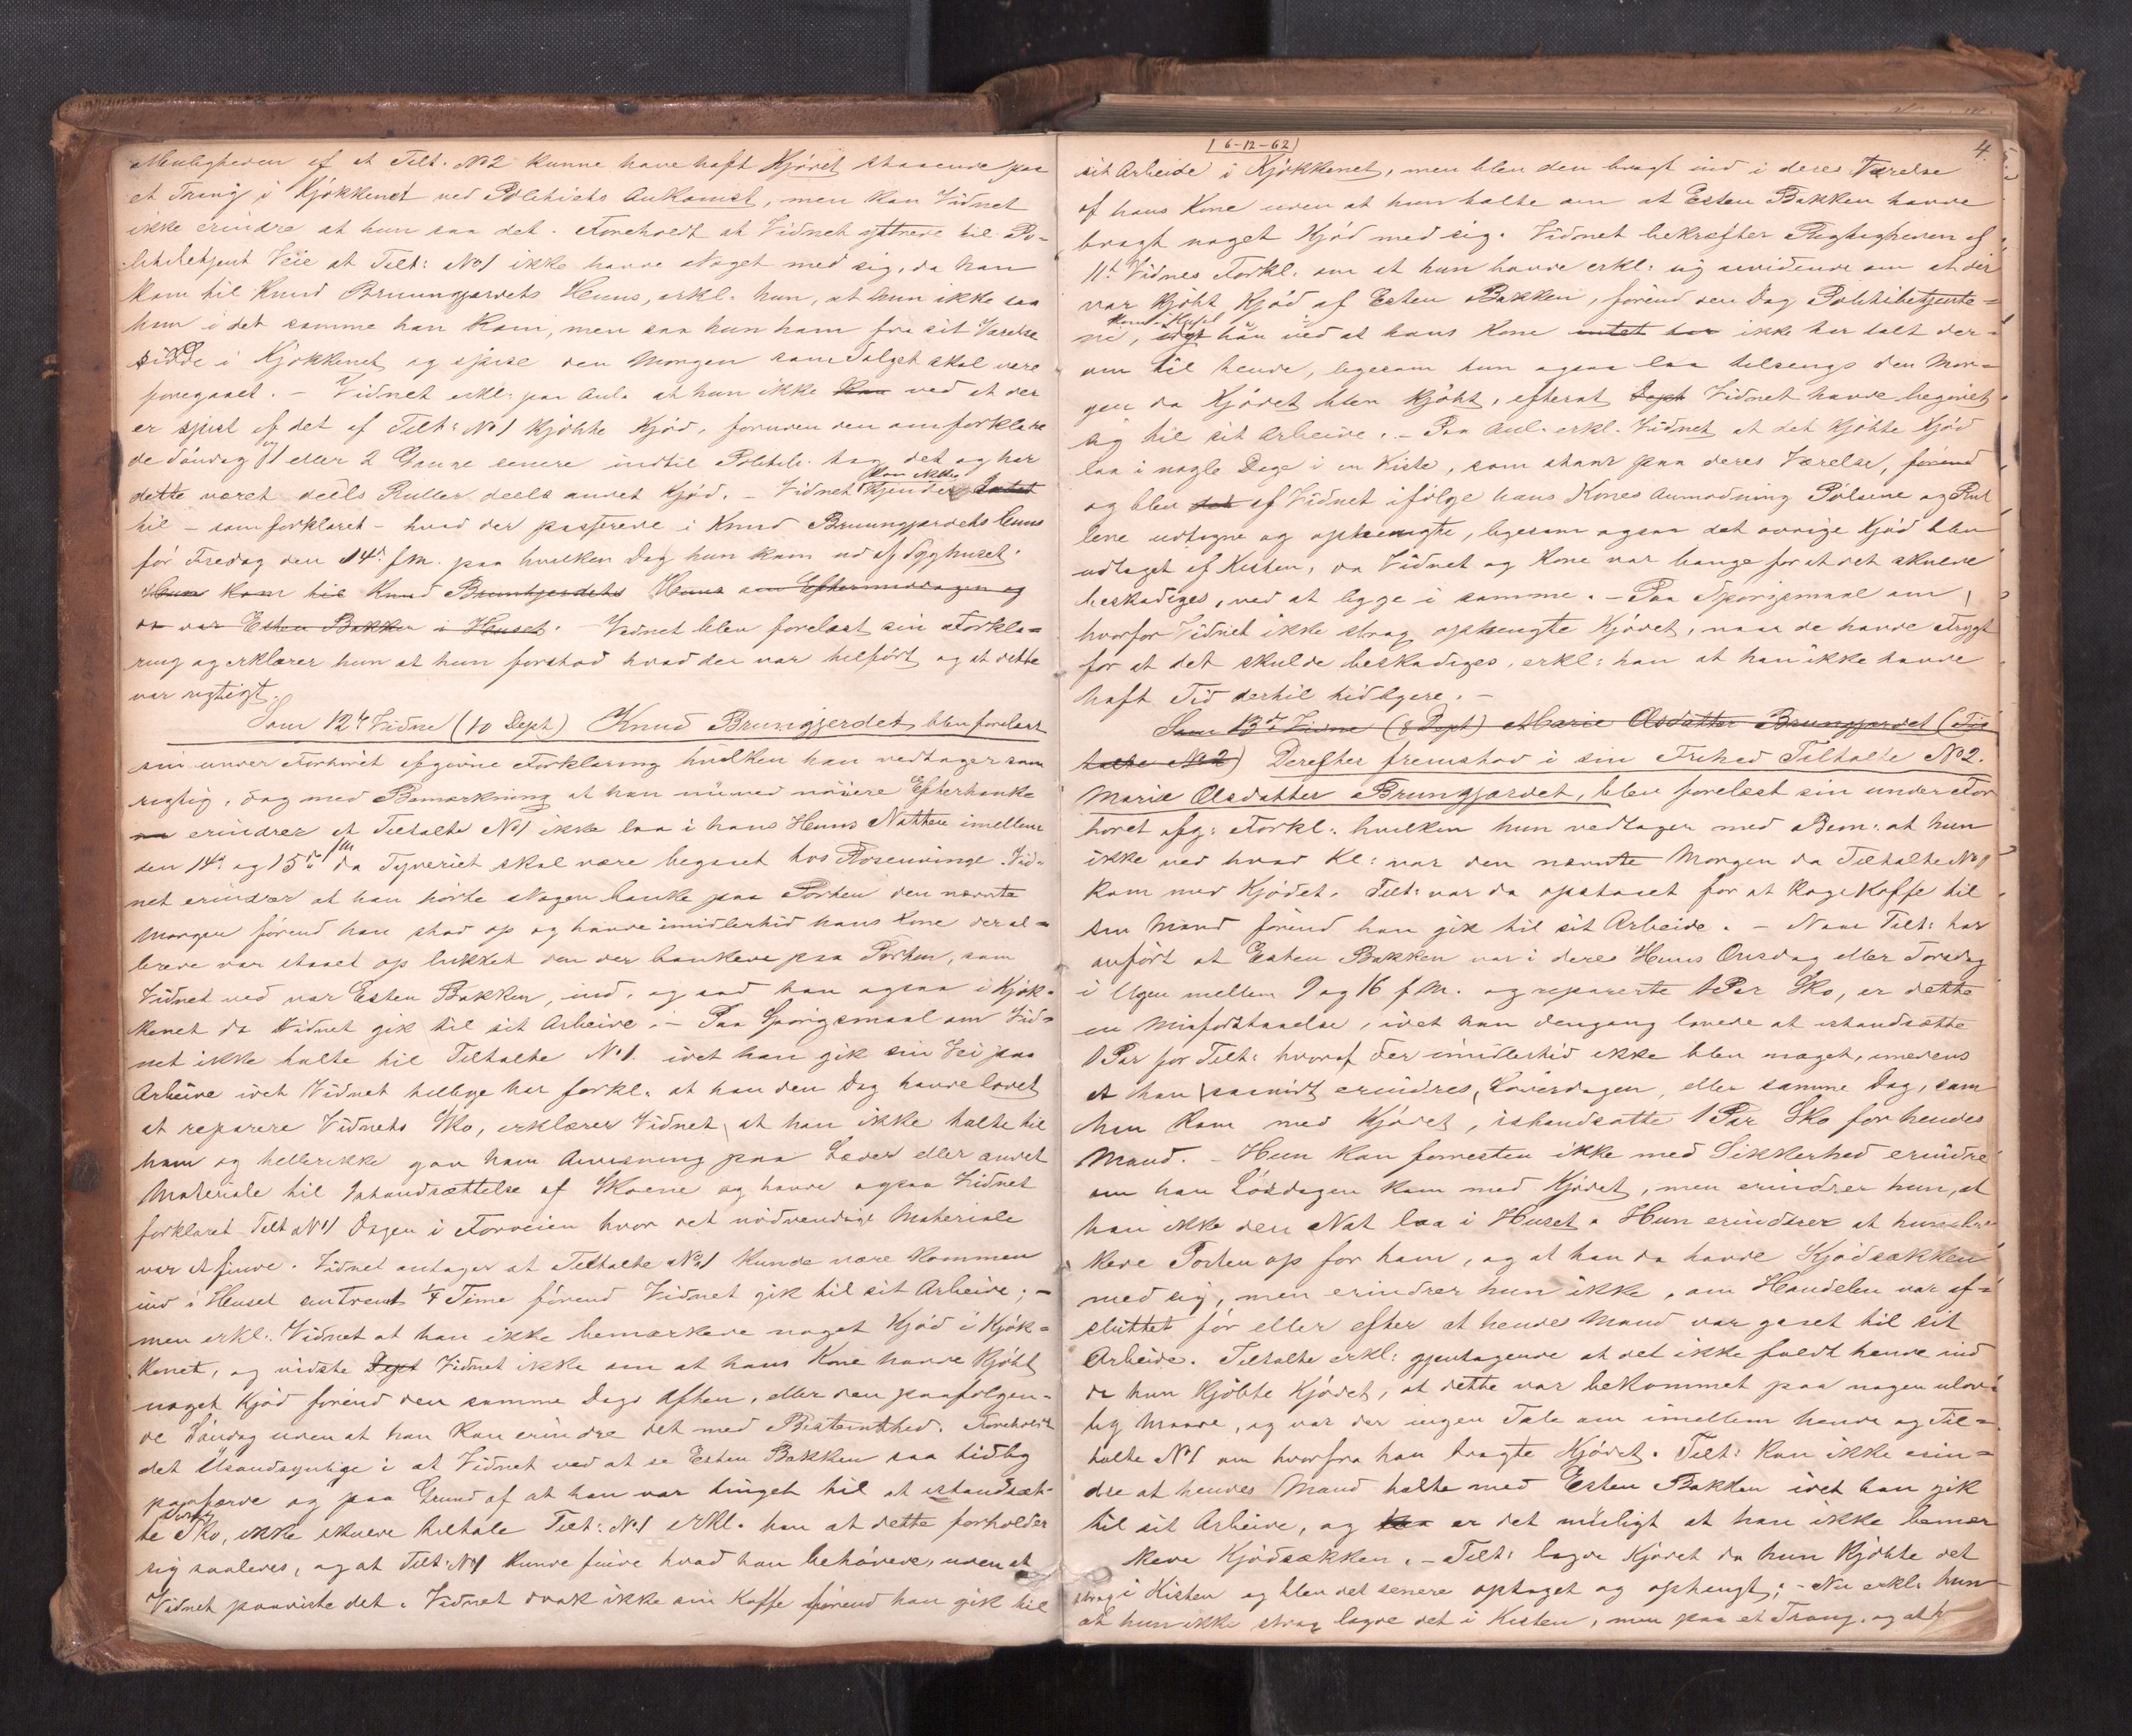 Muligheden af at Tilt. No 2 kunne have haft Kjödet staaende paa
et Traug i Kjökkenet ved Politiets Ankomst, men kan Vidnet
ikke erindre at hun saa det. Foreholdt at Vidnet yttrede til Po-
litibetjent Veie at Tilt: No 1 ikke havde Noget med sig, da han
kom til Knud Bruungjerdets Huus, erkl. hun, at hun ikke saa
ham i det samme han kom, men saa hun ham fra sit Værelse
sidde i Kjökkenet og spise den Morgen som Salget skal være
foregaaet. – Vidnet erkl: paa Anl. at hun ikke ved at der
er spist af det af Tilt: No 1 kjöbte Kjöd, foruden den omforklare
de Söndag og 1 eller 2 Gange senere indtil Politib. tog det og har
dette været deels Ruller deels andet Kjöd. – Vidnet kan ikke kjender Intet
til – som forklaret – hvad der passerede i Knud Bruungjerdets Huus
för Fredag den 14d f.M. paa hvilken Dag hun kom ud af Syghuset.
Hun kom til Knud Brunkjerdets Huus om Eftermiddagen og
da var Esten Bakken i Huset. Vidnet blev forelæst sin Forkla=
ring og erklærer hun at hun forstod hvad der var tilfört og at dette
var rigtigt.
Som 12te Vidne (10 Dept) Knud Brungjerdet blev forelæst
sin under Forhöret afgivne Forklaring hvilken han vedtager som
rigtig, dog med Bemærkning at han nu ved nöiere Eftertanke
erindrer at Tiltalte No 1 ikke laa i hans Huus Natten imellem
den 14d og 15de f.M. da Tyveriet skal være begaaet hos Rosenvinge. Vid-
net erindrer at han hörte Nogen banke paa Porten den nævnte
Morgen förend han stod op og havde imidlertid hans Kone der al=
lerede var staaet op lukket den der bankede paa Porten, som
Vidnet ved var Esten Bakken, ind, og sad han ogsaa i Kjök-
kenet da Vidnet gik til sit Arbeide. – Paa Spörgsmaal om Vid=
net ikke talte til Tiltalte No 1. idet han gik sin Vei paa
Arbeide idet Vidnet tillige har forkl. at han den Dag havde lovet
at reparere Vidnets Sko, erklærer Vidnet, at han ikke talte til
ham og hellerikke gav ham Anvisning paa Læder eller andet
Materiale til Istandsættelse af Skoene og havde ogsaa Vidnet
forklaret Tilt No 1 Dagen i Forveien hvor det nödvendige Materiale
var at finde. Vidnet antager at Tiltalte No 1 kunde være kommen
ind i Huset omtrent 1/4 Time förend Vidnet gik til sit Arbeide; –
men erkl. Vidnet at han ikke bemærkede noget Kjöd i Kjök=
kenet, og vidste Dept Vidnet ikke om at hans Kone havde kjöbt
noget Kjöd förend den samme Dags Aften, eller den paafölgen=
de Söndag uden at han kan erindre det med Bestemthed. Foreholdt
det Usandsynlige i at Vidnet ved at se Esten Bakken saa tidlig
paafærde og paa Grund af at han var tinget til at istandsæt-
te Sko, ikke skulde tiltale Tilt: No 1 erkl. han at dette forholder
sig saaledes, og at Tilt: No 1 kunde finde hvad han behövede, uden at
Vidnet paaviste det. Vidnet drak ikke sin Kaffe förend han gik til
16-12-62
4.
sit Arbeide i Kjökkenet, men blev den bragt ind i deres Værelse
af hans Kone uden at hun talte om at Esten Bakken havde
bragt noget Kjöd med sig. Vidnet bekræfter Rigtigheden af
11te Vidnes Forkl. om at hun havde erkl: sig uvidende om at der
var kjöbt Kjöd af Esten Bakken, förend den Dag Politibetjente=
ne, han ved at hans Kone intet har ikke har talt der=
om til hende, ligesom hun ogsaa laa tilsengs den Mor=
gen da Kjödet blev kjöbt, efterat Dept Vidnet havde begivet
sig til sit Arbeide. – Paa Anl. erkl. Vidnet at det kjöbte Kjöd
laa i nogle Dage i en Kiste, som staar paa deres Værelse, förend
og blev af Vidnet ifölge hans Kones Anmodning Pölsene og Rul
lene udtagne og ophængte, ligesom ogsaa det övrige Kjöd blev
udtaget af Kisten, da Vidnet og Kone var bange for at det skulde
beskadiges, ved at ligge i samme. – Paa Spörgsmaal om
hvorfor Vidnet ikke strax ophængte Kjödet, naar de havde Frygt
for at det skulde beskadiges, erkl: han at han ikke havde
haft Tid dertil tidligere. –
Som 13de Vidne (8 Dept) Marie Olsdatter Brungjerdet (Til
talte No 2) Derefter fremstod i sin Frihed Tiltalte No 2.
Marie Olsdatter Brungjærdet, blev forelæst sin under For
höret afg: Forkl: hvilken hun vedtager med Bem: at hun
ikke ved hvad Kl: var den nævnte Morgen da Tiltalte No 1
kom med Kjödet. Tilt: var da opstaaet for at koge Kaffe til
sin Mand förend han gik til sit Arbeide. – Naar Tilt: har
anfört at Esten Bakken var i deres Huus Onsdag eller Torsdag
i Ugen mellem 9 og 16 f.M. og reparerte 1 Par Sko, er dette
en Misforstaaelse, idet han dengang lovede at istandsætte
1 Par for Tilt: hvoraf der imidlertid ikke blev noget, imedens
at han, saavidt erindres, Löverdagen, eller samme Dag, som
han kom med Kjödet, istandsatte 1 Par Sko for hendes
Mand. – Hun kan forresten ikke med Sikkerhed erindre
om han Lördagen kom med Kjödet, men erindrer hun, at
han ikke den Nat laa i Huset. Hun erindrer at hun luk-
kede Porten op for ham, og at han da havde Kjödsækken
med sig, men erindrer hun ikke, om Handelen var af=
sluttet för eller efter at hendes Mand var gaaet til sit
Arbeide. Tiltalte erkl: gjentagende at det ikke faldt hende ind
da hun kjöbte Kjödet, at dette var bekommet paa nogen ulov=
lig Maade, og var der ingen Tale om imellem hende og Til=
talte No 1 om hvorfra han bragte Kjödet. Tilt: kan ikke erin=
dre at hendes Mand talte med Esten Bakken idet han gik
til sit Arbeide, og er det muligt at han ikke bemær
kede Kjödsækken. – Tilt: lagde Kjödet da hun kjöbte det
strax i Kisten og blev det senere optaget og ophængt; – Nu erkl. hun
at hun ikke strax lagde det i Kisten, men paa et Traug, og at